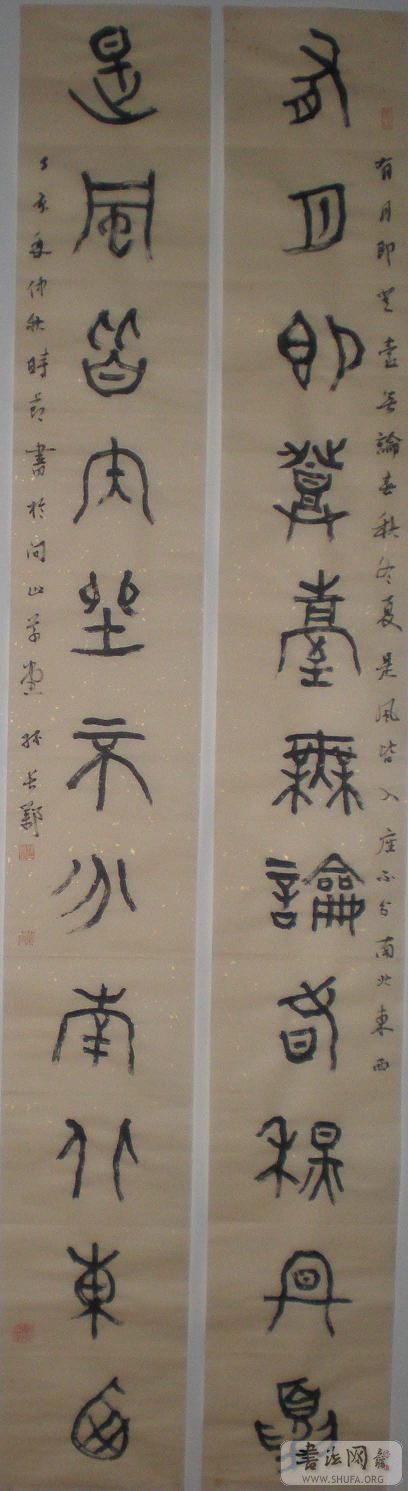 有月即登臺無論春秋冬夏
有月即登臺無論春秋冬夏是風皆入座不分南北東西
是風皆入坐不分南北東西
丁亥年仲秋時節書於問山草堂
書法网
WWW.SHUFA.ORG